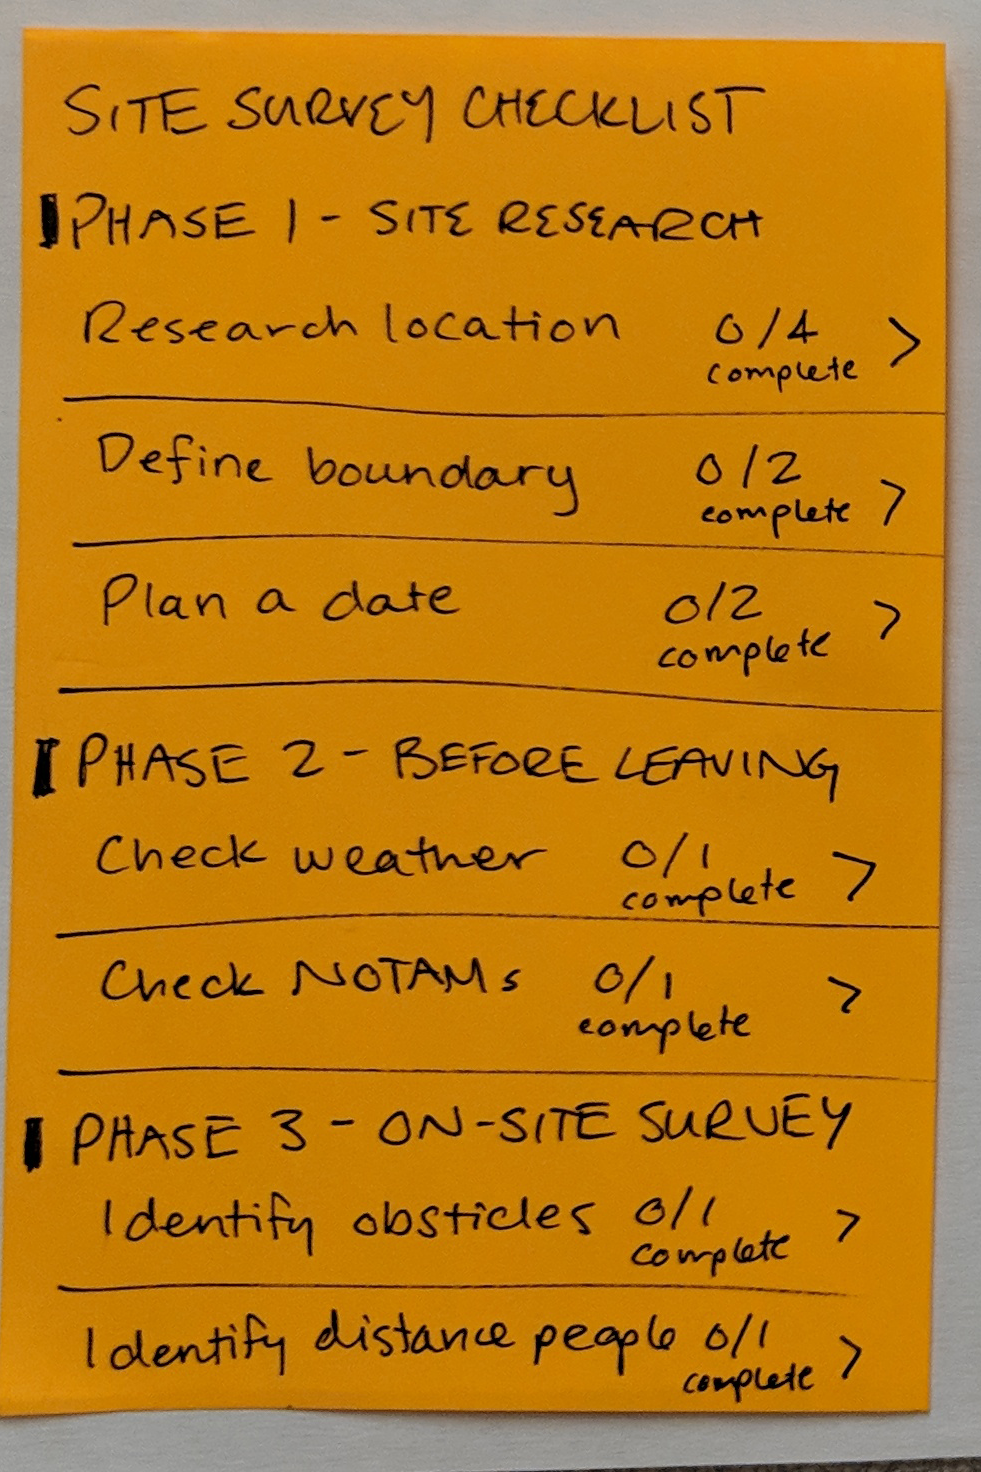 SITE SURVEY CHECKLIST
PHASE 1 - SITE RESEARCH
Research location 0/4 >
complete
Define boundary 0/2 >
complete
Plan a date 0/2 >
complete
PHASE 2 - BEFORE LEAVING
Check weather 0/1 >
complete
Check NOTAMs 0/1 >
complete
PHASE 3 - ON-SITE SURVEY
Identify obsticles 0/1 >
complete
Identify distance people 0/1 >
complete